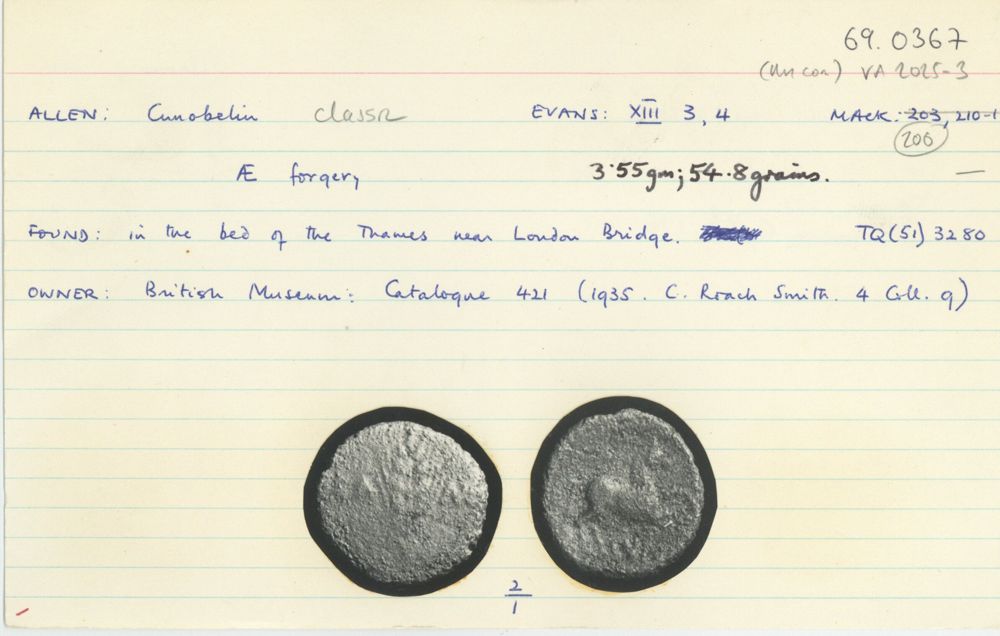 69.0367
(Un coa) VA 2025-3
ALLEN: Cunobelin classic EVANS: XIII 3, 4 MACK: 203, 210-1
206
Æ forgery 3.55gm; 54.8grains. —
FOUND: in the bed of the Thames near London Bridge. TQ(51) 3280
OWNER: British Museum: Catalogue 421 (1935. C. Roach Smith. 4 Coll. 9)
2
1